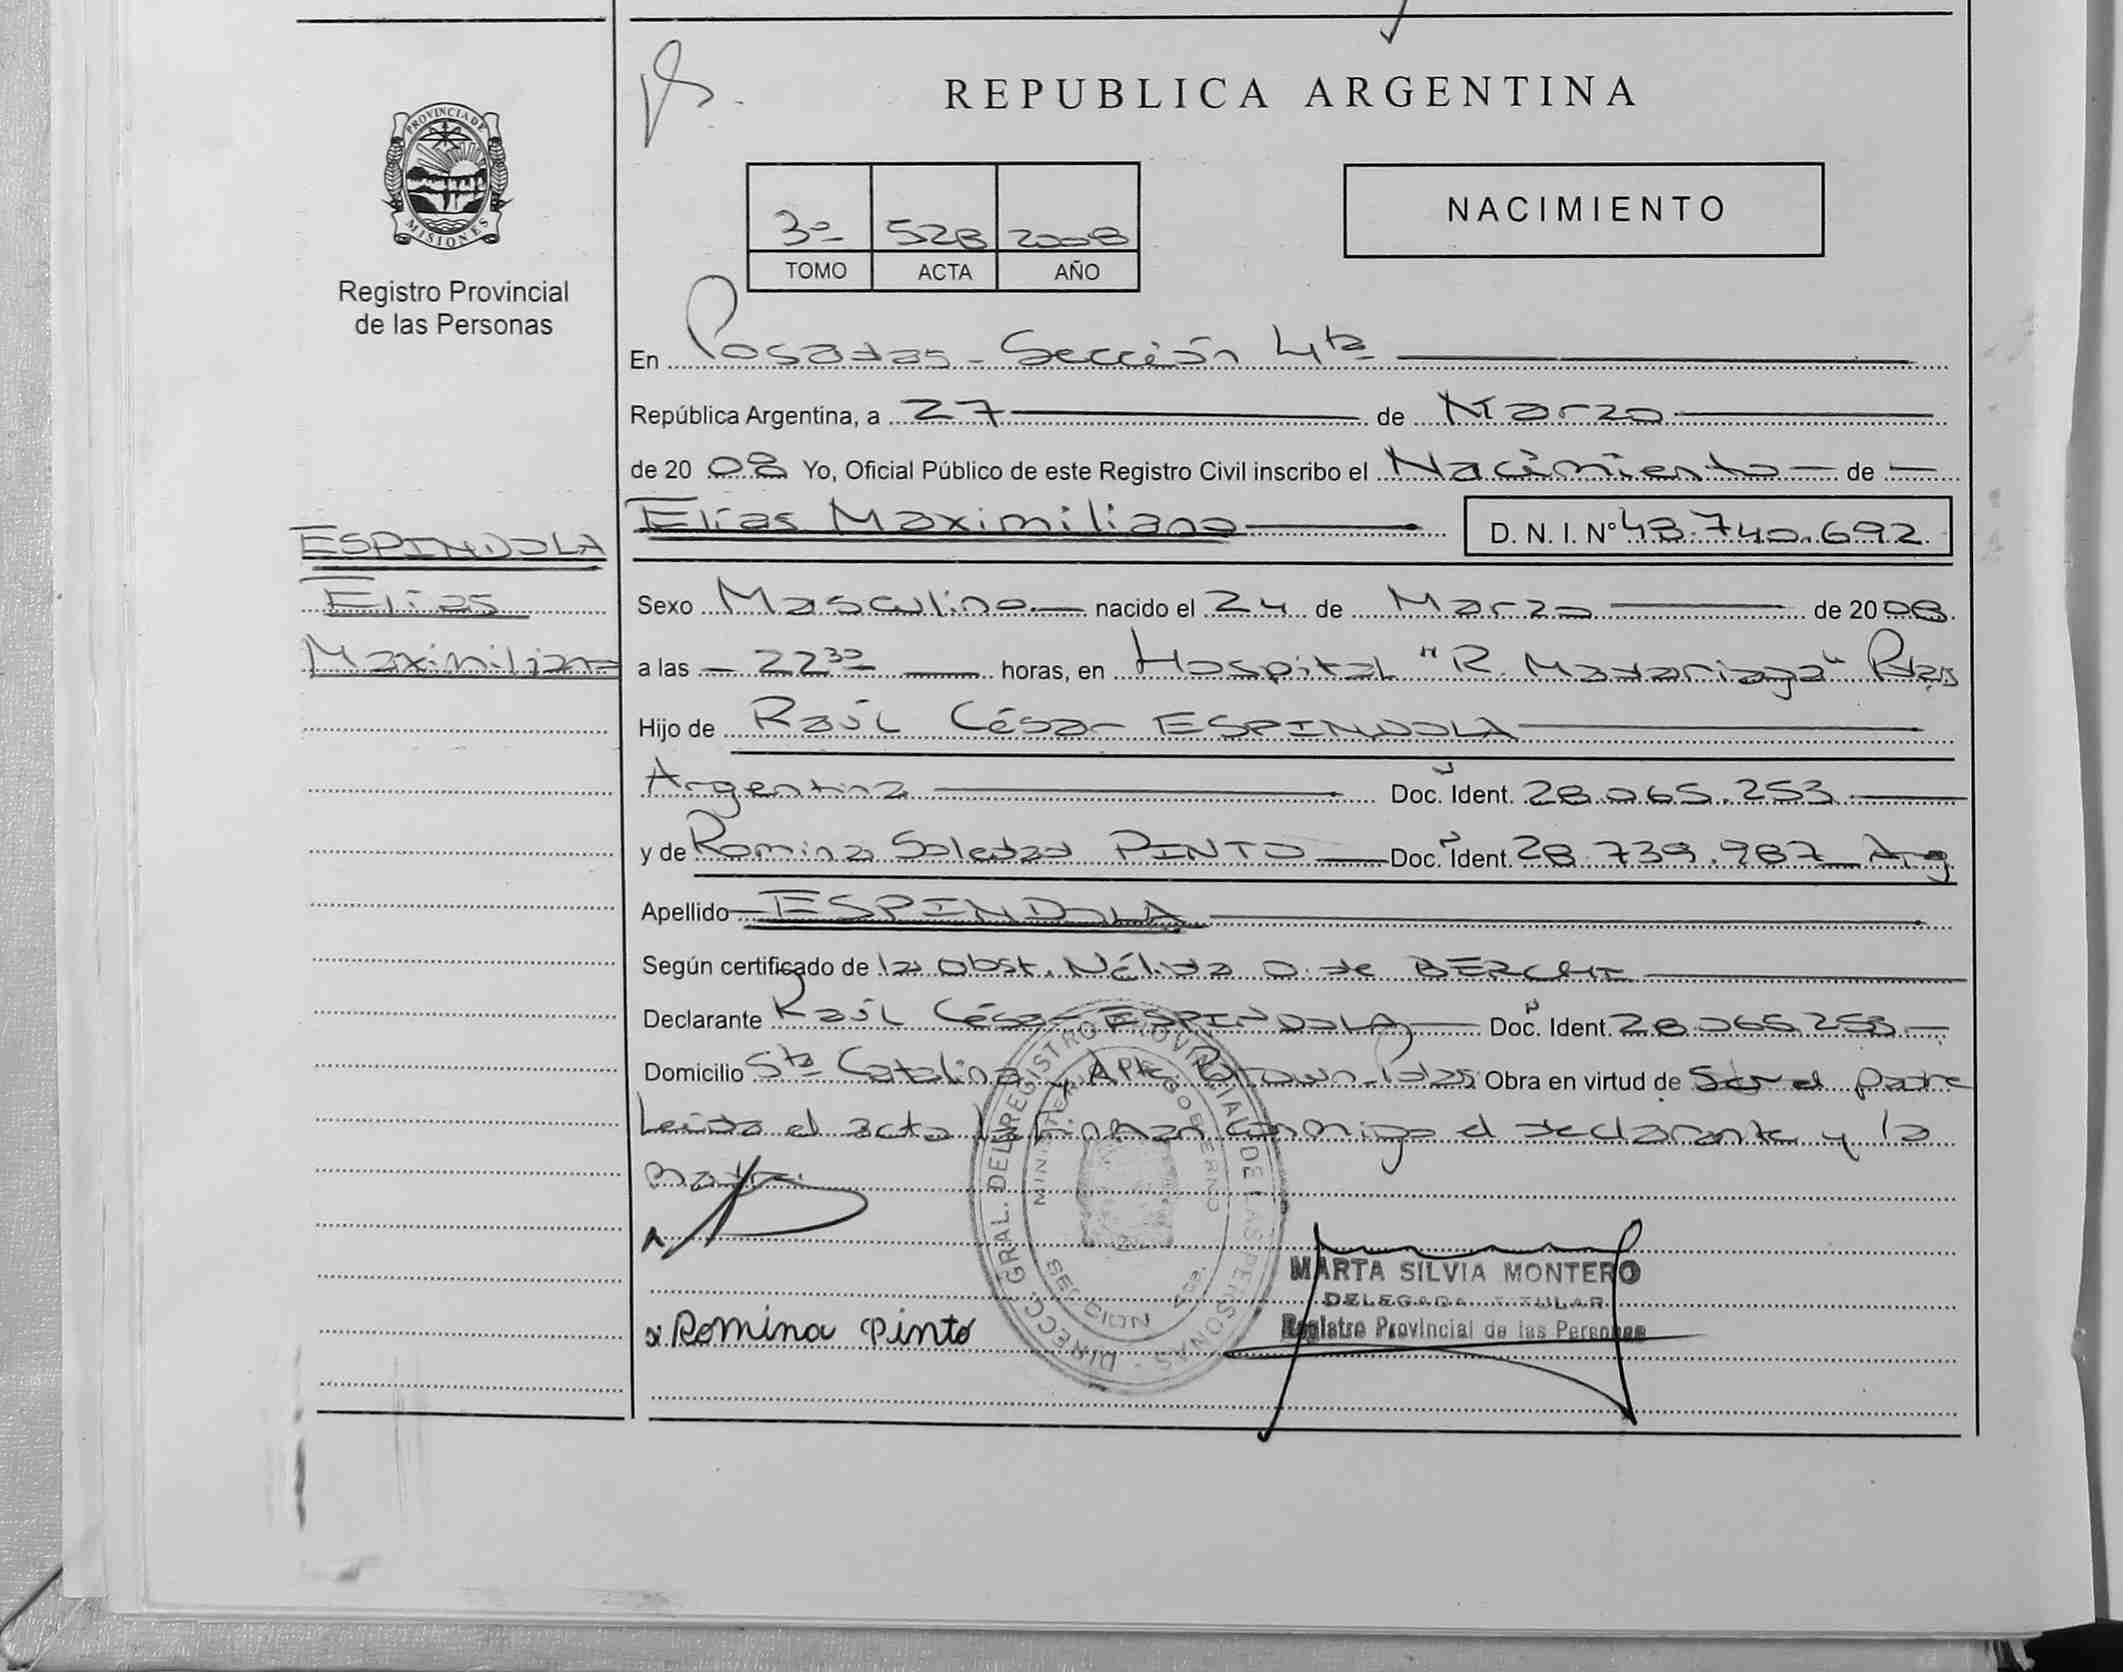 REPUBLICA ARGENTINA
PROVINCIA DE
MISIONES
Registro Provincial
de las Personas
3º 528 2008
TOMO ACTA AÑO
NACIMIENTO
En Posadas - Sección 4ta
República Argentina, a 27 de Marzo
de 2008 Yo, Oficial Público de este Registro Civil inscribo el Nacimiento de
Elías Maximiliano D. N. I. Nº 48.740.692
ESPINDOLA
Elías
Maximiliano
Sexo Masculino nacido el 24 de Marzo de 2008
a las 22³⁰ horas, en Hospital "R. Madariaga" Pdas
Hijo de Raúl César ESPINDOLA
Argentina Doc. Ident. 28.065.253
y de Romina Soledad PINTO Doc. Ident. 28.739.987 Arg
Apellido ESPINDOLA
Según certificado de la Obst. Nélida O. de
Declarante Raúl César ESPINDOLA Doc. Ident. 28.065.253
Domicilio Sta Catalina y Brown Pdas Obra en virtud de Ser el padre
Leída el acta la Firman conmigo el declarante y la
madre.
DIRECC. GRAL. DEL REGISTRO PROVINCIAL DE LAS PERSONAS
MINISTERIO GOBIERNO
SECCION 4ta.
MARTA SILVIA MONTERO
DELEGADA TITULAR
Registro Provincial de las Personas
x Romina Pinto